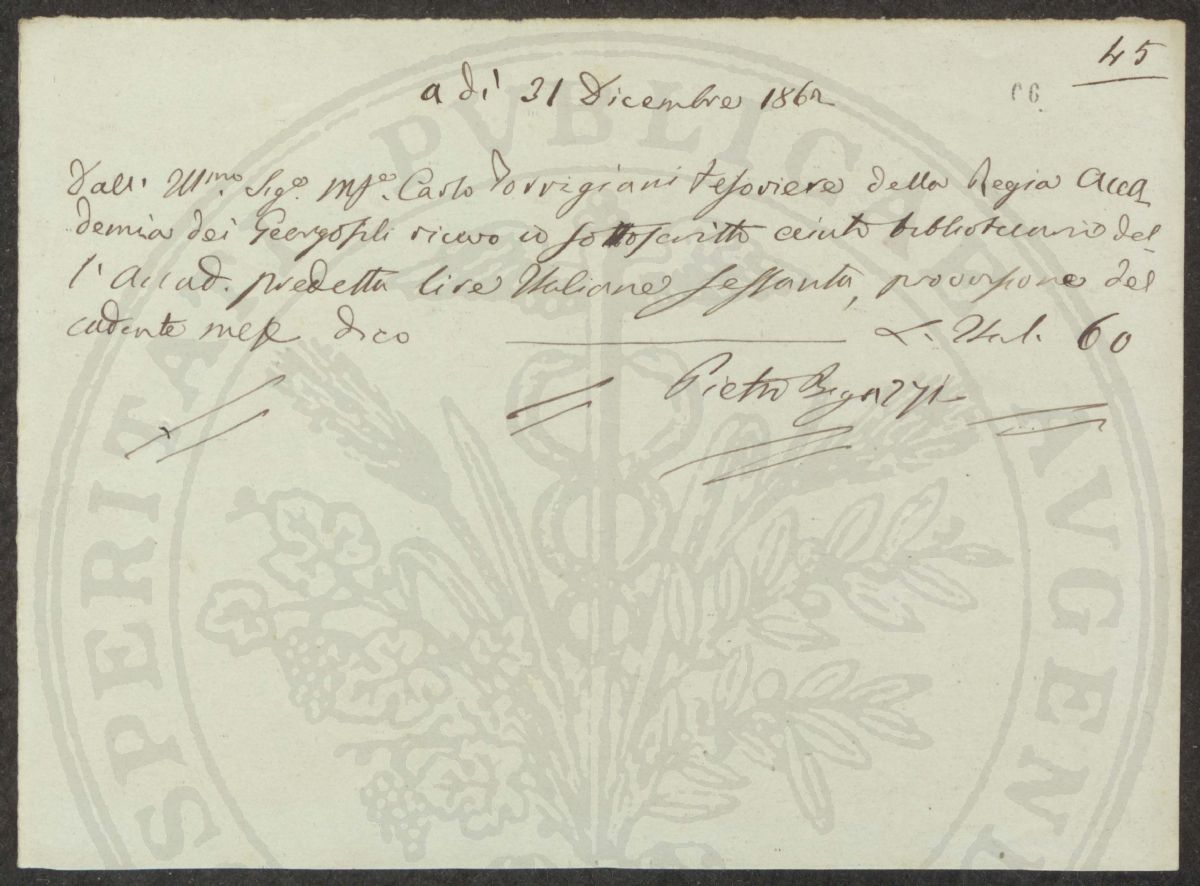 45
66
a dì 31 Dicembre 1862
Dall' Ill.mo Sig.e M.se Carlo Torrigiani Tesoriere della Regia Acca
demia dei Georgofili ricevo io sottoscritto aiuto bibliotecario del
l'Accad. predetta lire Italiane sessanta, provvisione del
cadente mese dico — L. Ital. 60
Pietro Bigazzi
PROSPERITATI PVBLICAE AVGENDAE